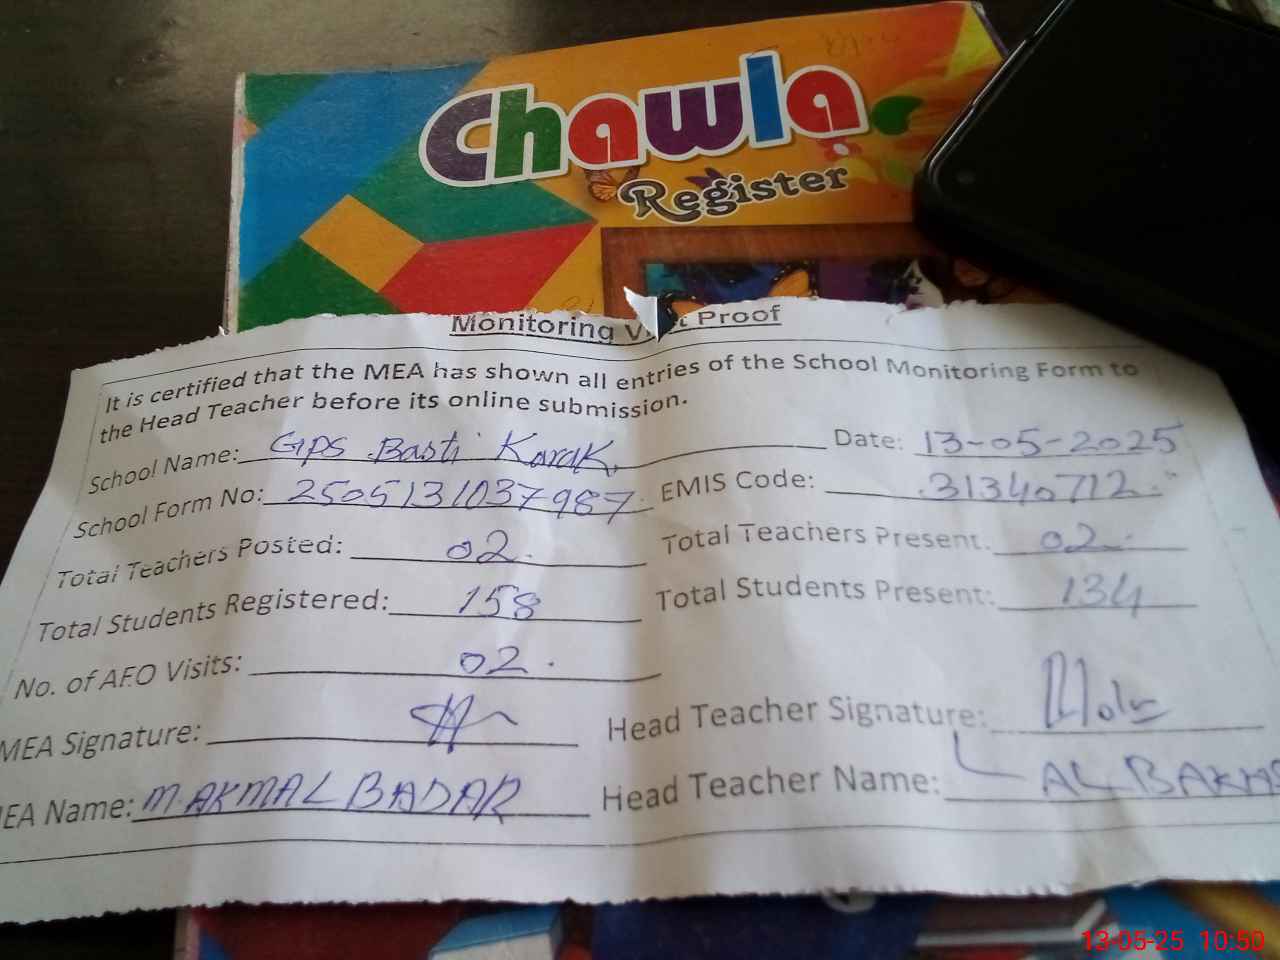 Chawla
Register
Monitoring Proof
It is certified that the MEA has shown all entries of the School Monitoring Form to
the Head Teacher before its online submission.
School Name: GPS Basti Karak Date: 13-05-2025
School Form No: 2505131037987 EMIS Code: 31340712
Total Teachers Posted: 02 Total Teachers Present: 02
Total Students Registered: 158 Total Students Present: 134
No. of AEO Visits: 02
MEA Signature: Head Teacher Signature:
MEA Name: M. AKMAL BADAR Head Teacher Name: LAL
13-05-25 10:50